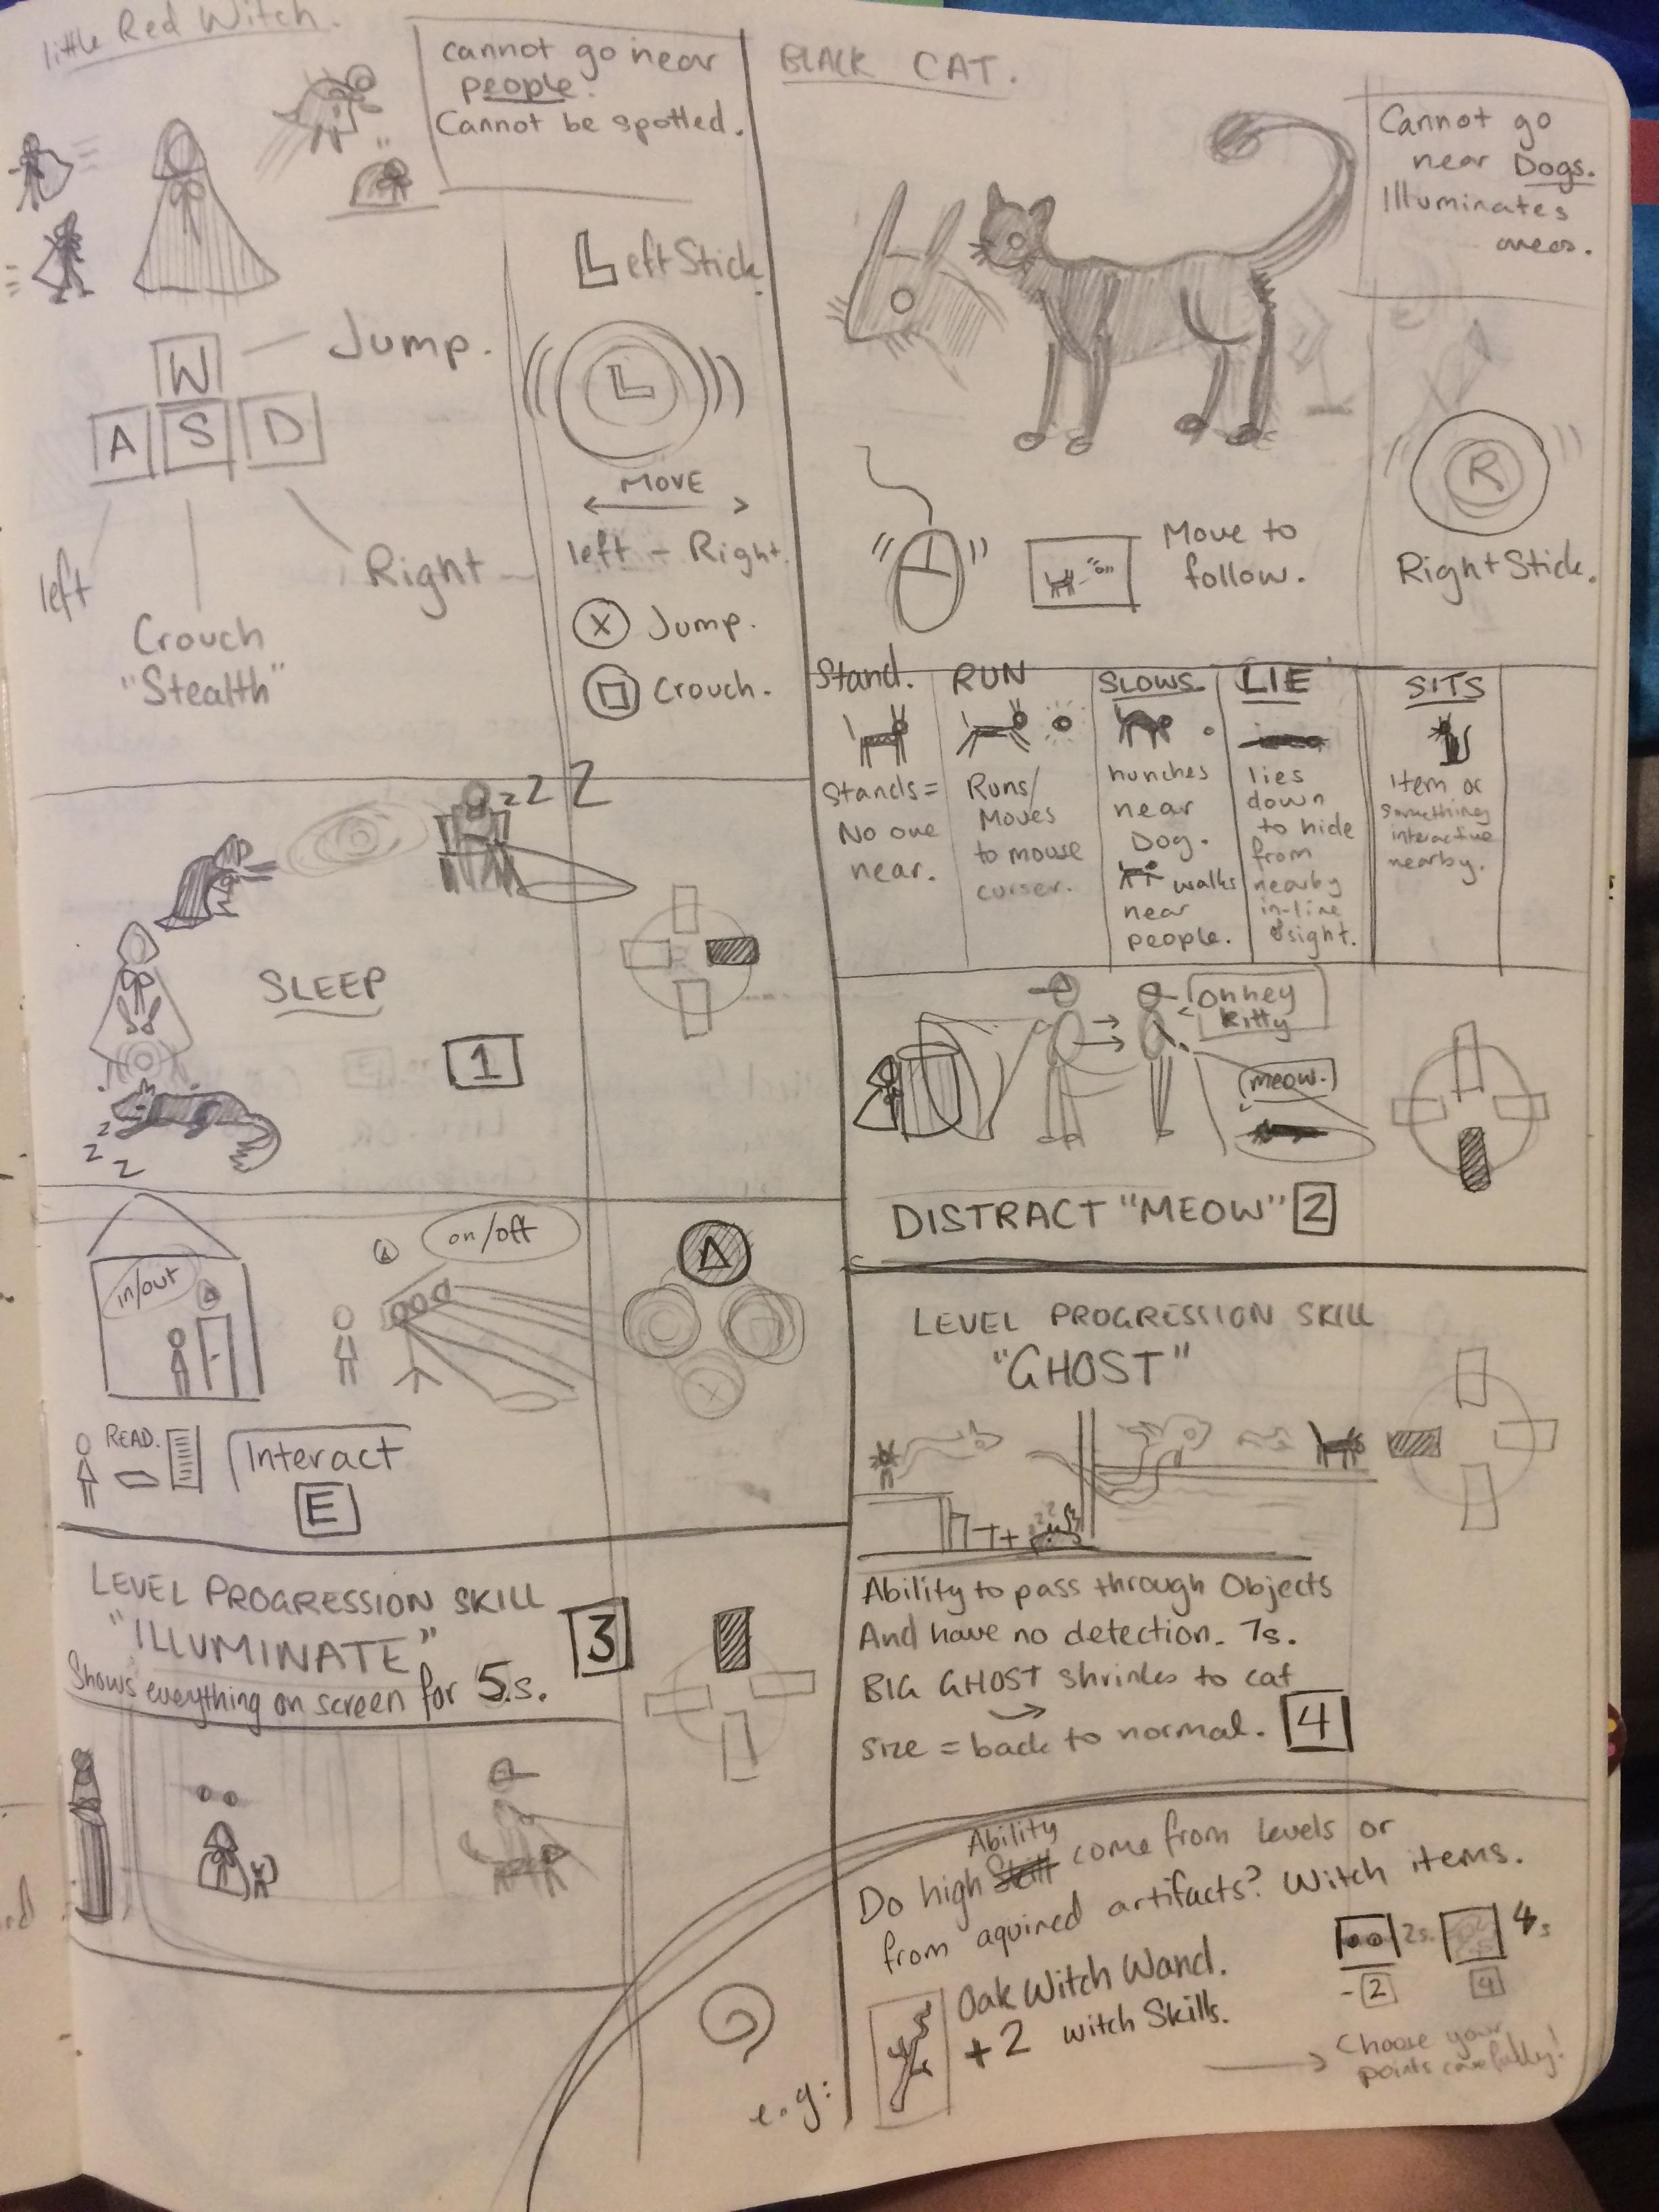 little Red Witch.
cannot go near
people.
Cannot be spotted.
Left Stick
L
MOVE
left - Right.
X Jump.
Crouch.
W
Jump.
A S D
left
Right
Crouch
"Stealth"
BLACK CAT.
Cannot go
near Dogs.
Illuminates
areas.
Move to
follow.
R
Right Stick.
Stand.
Stands =
No one
near.
RUN
Runs/
Moves
to mouse
curser.
SLOWS
hunches
near
Dog.
walks
near
people.
LIE
lies
down
to hide
from
nearby
in-line
sight.
SITS
Item or
something
interactive
nearby.
zzZ
SLEEP
1
z
z
z
Oh hey
kitty
meow.
DISTRACT "MEOW" 2
in/out
on/off
READ.
Interact
E
X
LEVEL PROGRESSION SKILL
"GHOST"
Ability to pass through Objects
And have no detection. 7s.
BIG GHOST shrinks to cat
size = back to normal. 4
LEVEL PROGRESSION SKILL
"ILLUMINATE"
3
Shows everything on screen for 5.s.
Ability
Do high Skill come from levels or
from aquired artifacts? Witch items.
e.g:
Oak Witch Wand.
+2 witch Skills.
2s.
4s
-2
4
Choose your
points carefully!